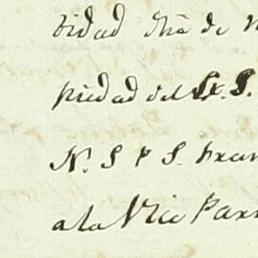 bidad
piedad del S. S.
N. S P S. Fran
a la Vice Parr